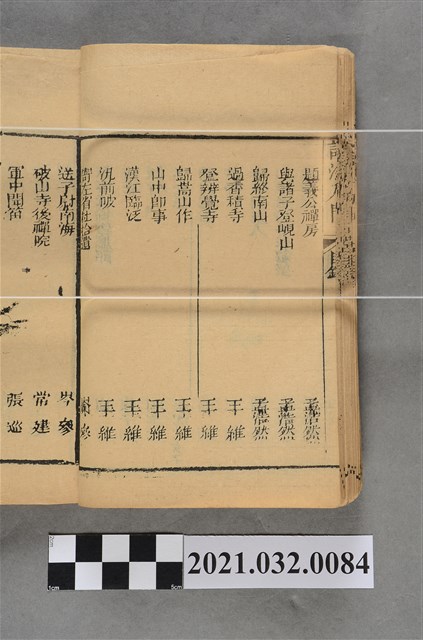 題義公禪房 孟浩然
與諸子登峴山 孟浩然
歸終南山 孟浩然
過香積寺 王維
登辨覺寺 王維
歸嵩山作 王維
山中即事 王維
漢江臨泛 王維
汎前陂 王維
寄左省杜拾遺 岑參
送子尉南海 岑參
破山寺後禪院 常建
軍中聞笛 張巡
2021.032.0084
2cm
1cm
5cm